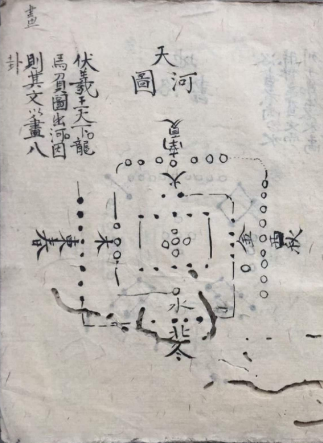 天
河圖
伏羲王天下龍
馬負圖出河因
則其文以畫八
卦
畫
南夏
火
東春
木
金
西秋
水
北冬